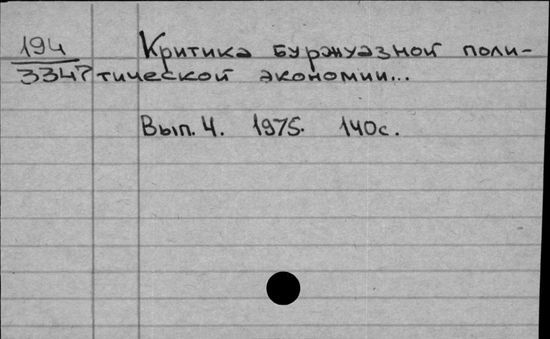 194 Критика буржуазной поли-
3347 тической экономии...
Вып. 4. 1975. 140с.